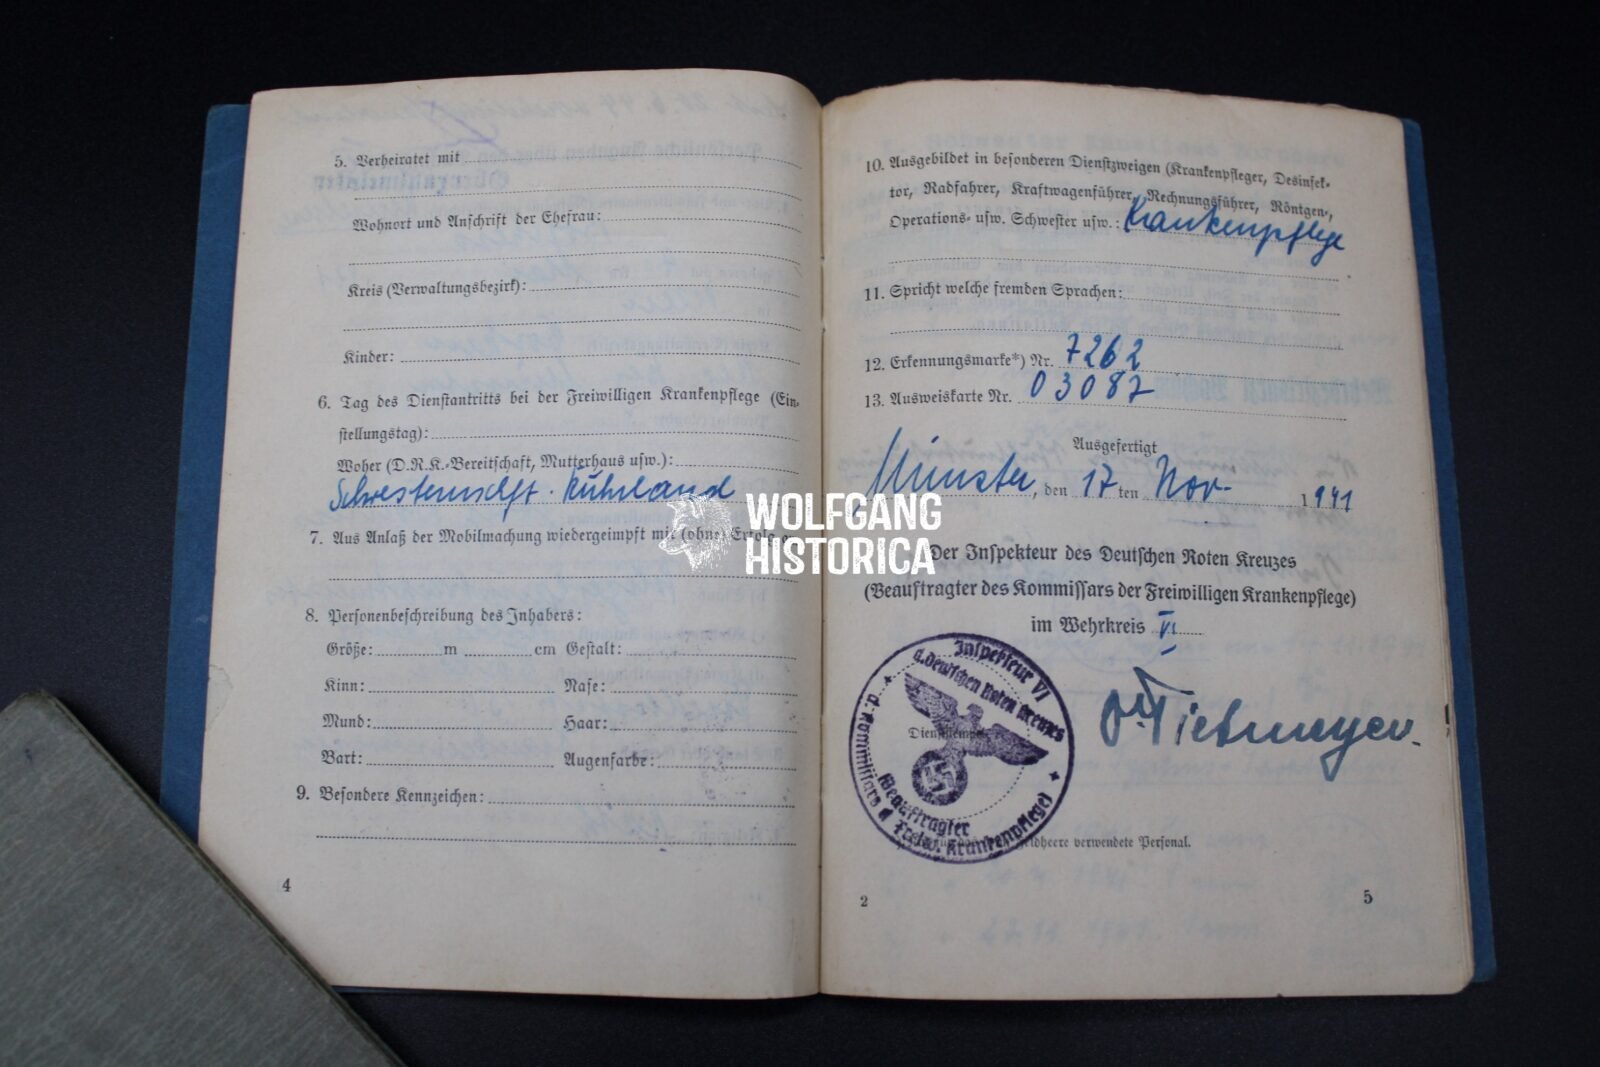 5. Verheiratet mit
Wohnort und Anschrift der Ehefrau:
Kreis (Verwaltungsbezirk):
Kinder:
6. Tag des Dienstantritts bei der Freiwilligen Krankenpflege (Ein-
stellungstag):
Woher (D.R.K.-Bereitschaft, Mutterhaus usw.):
Schwesternschft. Ruhrland
7. Aus Anlaß der Mobilmachung wiedergeimpft mit (ohne) Erfolg
8. Personenbeschreibung des Inhabers:
Größe: m cm Gestalt:
Kinn: Nase:
Mund: Haar:
Bart: Augenfarbe:
9. Besondere Kennzeichen:
4
10. Ausgebildet in besonderen Dienstzweigen (Krankenpfleger, Desinfek-
tor, Radfahrer, Kraftwagenführer, Rechnungsführer, Röntgen-,
Operations- usw. Schwester usw.: Krankenpflege
11. Spricht welche fremden Sprachen:
12. Erkennungsmarke*) Nr. 7262
13. Ausweiskarte Nr. 03087
Ausgefertigt
Münster, den 17 ten Nov. 1941
Der Inspekteur des Deutschen Roten Kreuzes
(Beauftragter des Kommissars der Freiwilligen Krankenpflege)
im Wehrkreis VI
Inspekteur VI
d. Deutschen Roten Kreuzes
Dienststempel
(Beauftragter
d. Kommissars d. Freiw. Krankenpflege)
Dr. Tietmeyer.
feldheere verwendete Personal.
2
5
WOLFGANG
HISTORICA